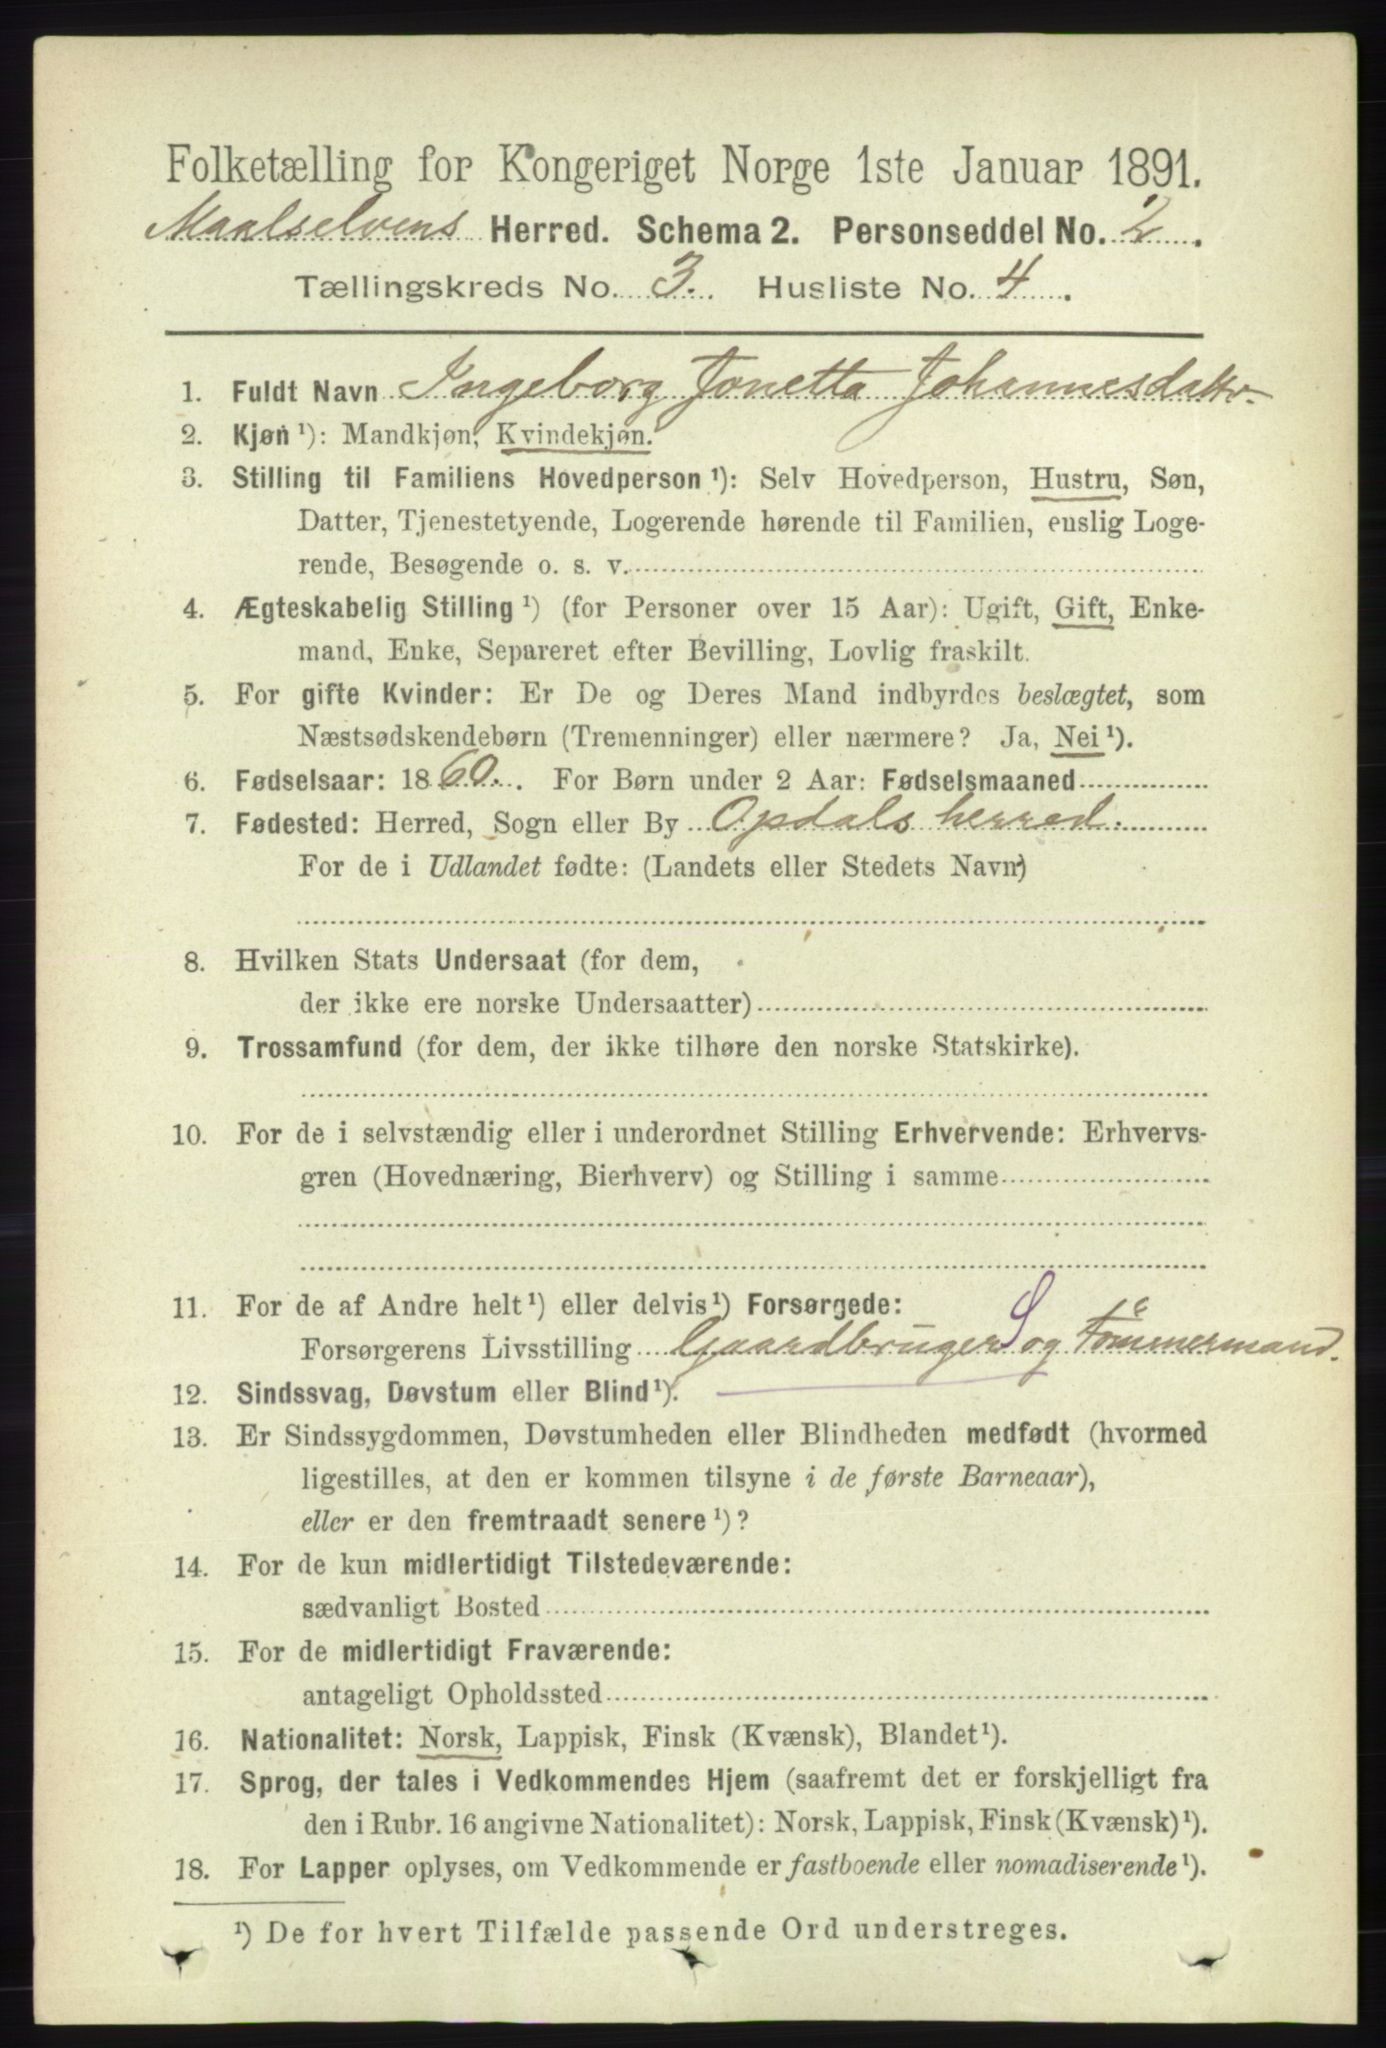 Folketælling for Kongeriget Norge 1ste Januar 1891.
Maalselvens Herred. Schema 2. Personseddel No. 2.
Tællingskreds No. 3. Husliste No. 4.
1. Fuldt Navn Ingeborg Jonetta Johannesdattr.
2. Kjøn¹): Mandkjøn, Kvindekjøn.
3. Stilling til Familiens Hovedperson¹): Selv Hovedperson, Hustru, Søn,
Datter, Tjenestetyende, Logerende hørende til Familien, enslig Loge-
rende, Besøgende o. s. v.
4. Ægteskabelig Stilling¹) (for Personer over 15 Aar): Ugift, Gift, Enke-
mand, Enke, Separeret efter Bevilling, Lovlig fraskilt.
5. For gifte Kvinder: Er De og Deres Mand indbyrdes beslægtet, som
Næstsødskendebørn (Tremenninger) eller nærmere? Ja, Nei¹).
6. Fødselsaar: 1860. For Børn under 2 Aar: Fødselsmaaned
7. Fødested: Herred, Sogn eller By Opdals herred.
For de i Udlandet fødte: (Landets eller Stedets Navn)
8. Hvilken Stats Undersaat (for dem,
der ikke ere norske Undersaatter)
9. Trossamfund (for dem, der ikke tilhøre den norske Statskirke).
10. For de i selvstændig eller i underordnet Stilling Erhvervende: Erhvervs-
gren (Hovednæring, Bierhverv) og Stilling i samme
11. For de af Andre helt¹) eller delvis¹) Forsørgede:
Forsørgerens Livsstilling Gaardbruger S og Tömmermand.
12. Sindssvag, Døvstum eller Blind¹).
13. Er Sindssygdommen, Døvstumheden eller Blindheden medfødt (hvormed
ligestilles, at den er kommen tilsyne i de første Barneaar),
eller er den fremtraadt senere¹)?
14. For de kun midlertidigt Tilstedeværende:
sædvanligt Bosted
15. For de midlertidigt Fraværende:
antageligt Opholdssted
16. Nationalitet: Norsk, Lappisk, Finsk (Kvænsk), Blandet¹).
17. Sprog, der tales i Vedkommendes Hjem (saafremt det er forskjelligt fra
den i Rubr. 16 angivne Nationalitet): Norsk, Lappisk, Finsk (Kvænsk)¹).
18. For Lapper oplyses, om Vedkommende er fastboende eller nomadiserende¹).
¹) De for hvert Tilfælde passende Ord understreges.